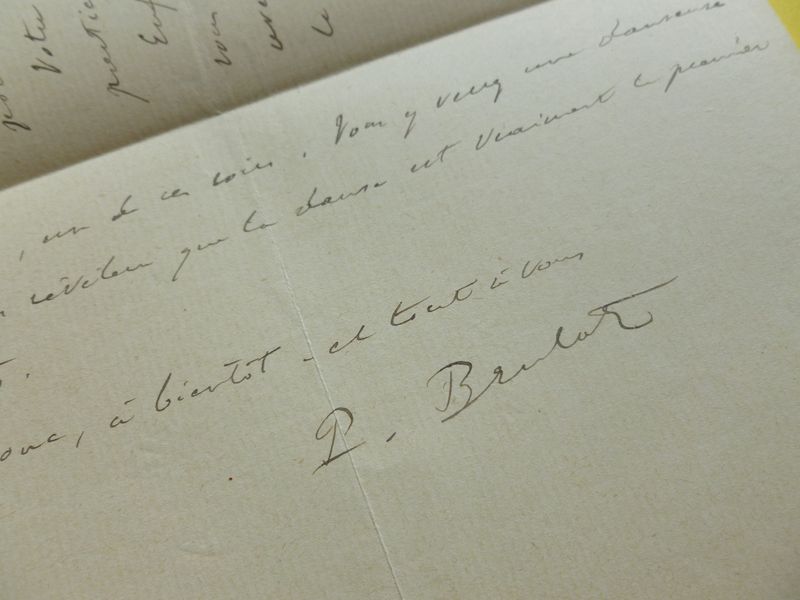 Votre
vous
le
, un de ces soirs. Vous y verrez une danseuse
révélera que la danse est vraiment le premier
à bientôt - et tout à vous
P. Brulat